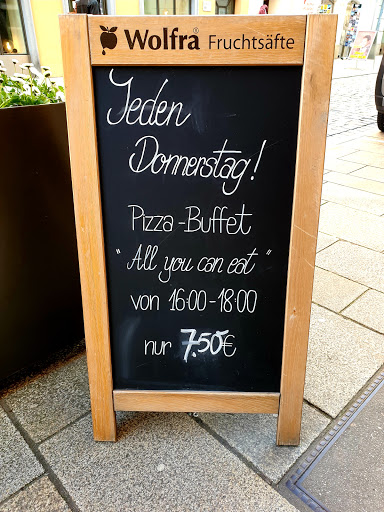 Wolfra Fruchtsäfte
Jeden
Donnerstag!
Pizza-Buffet
"All you can eat"
von 16:00-18:00
nur 7.50€